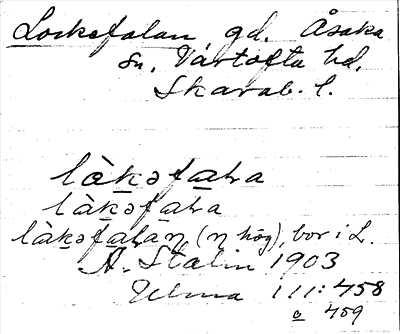 Lockefalan gd. Åsaka
sn, Vartofta hd,
Skarab. l.
làkəfaɫa
làkəfaɫa
làkəfaɫaɳ (ɳ hög), bor i L.
A. Stalin 1903
Ulma 111: 458
o 459